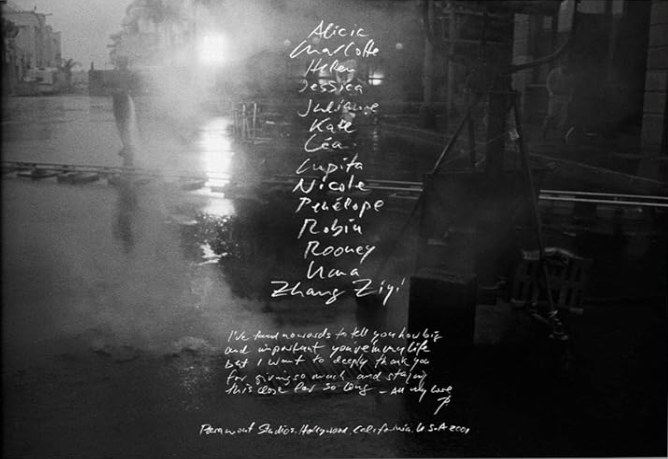 Alicia
Charlotte
Helen
Jessica
Julianne
Kate
Léa
Lupita
Nicole
Penélope
Robin
Rooney
Uma
Zhang Ziyi
I've found no words to tell you how big
and important you're in my life
but I want to deeply thank you
for giving so much and staying
this close for so long - All my love
Paramount Studios, Hollywood, California, USA 2001